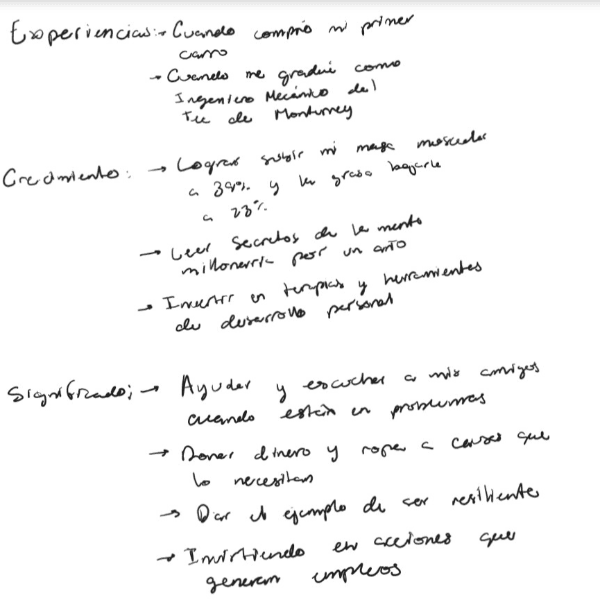 Experiencias: → Cuando compré mi primer
carro
→ Cuando me gradué como
Ingeniero Mecánico del
Tec de Monterrey
Crecimiento: → Lograr subir mi masa muscular
a 39% y la grasa bajarla
a 23%
→ Leer Secretos de la mente
millonaria por un año
→ Invertir en terapias y herramientas
de desarrollo personal
Significado: → Ayudar y escuchar a mis amigos
cuando están en problemas
→ Donar dinero y ropa a causas que
lo necesitan
→ Dar el ejemplo de ser resiliente
→ Invirtiendo en acciones que
generan empleos